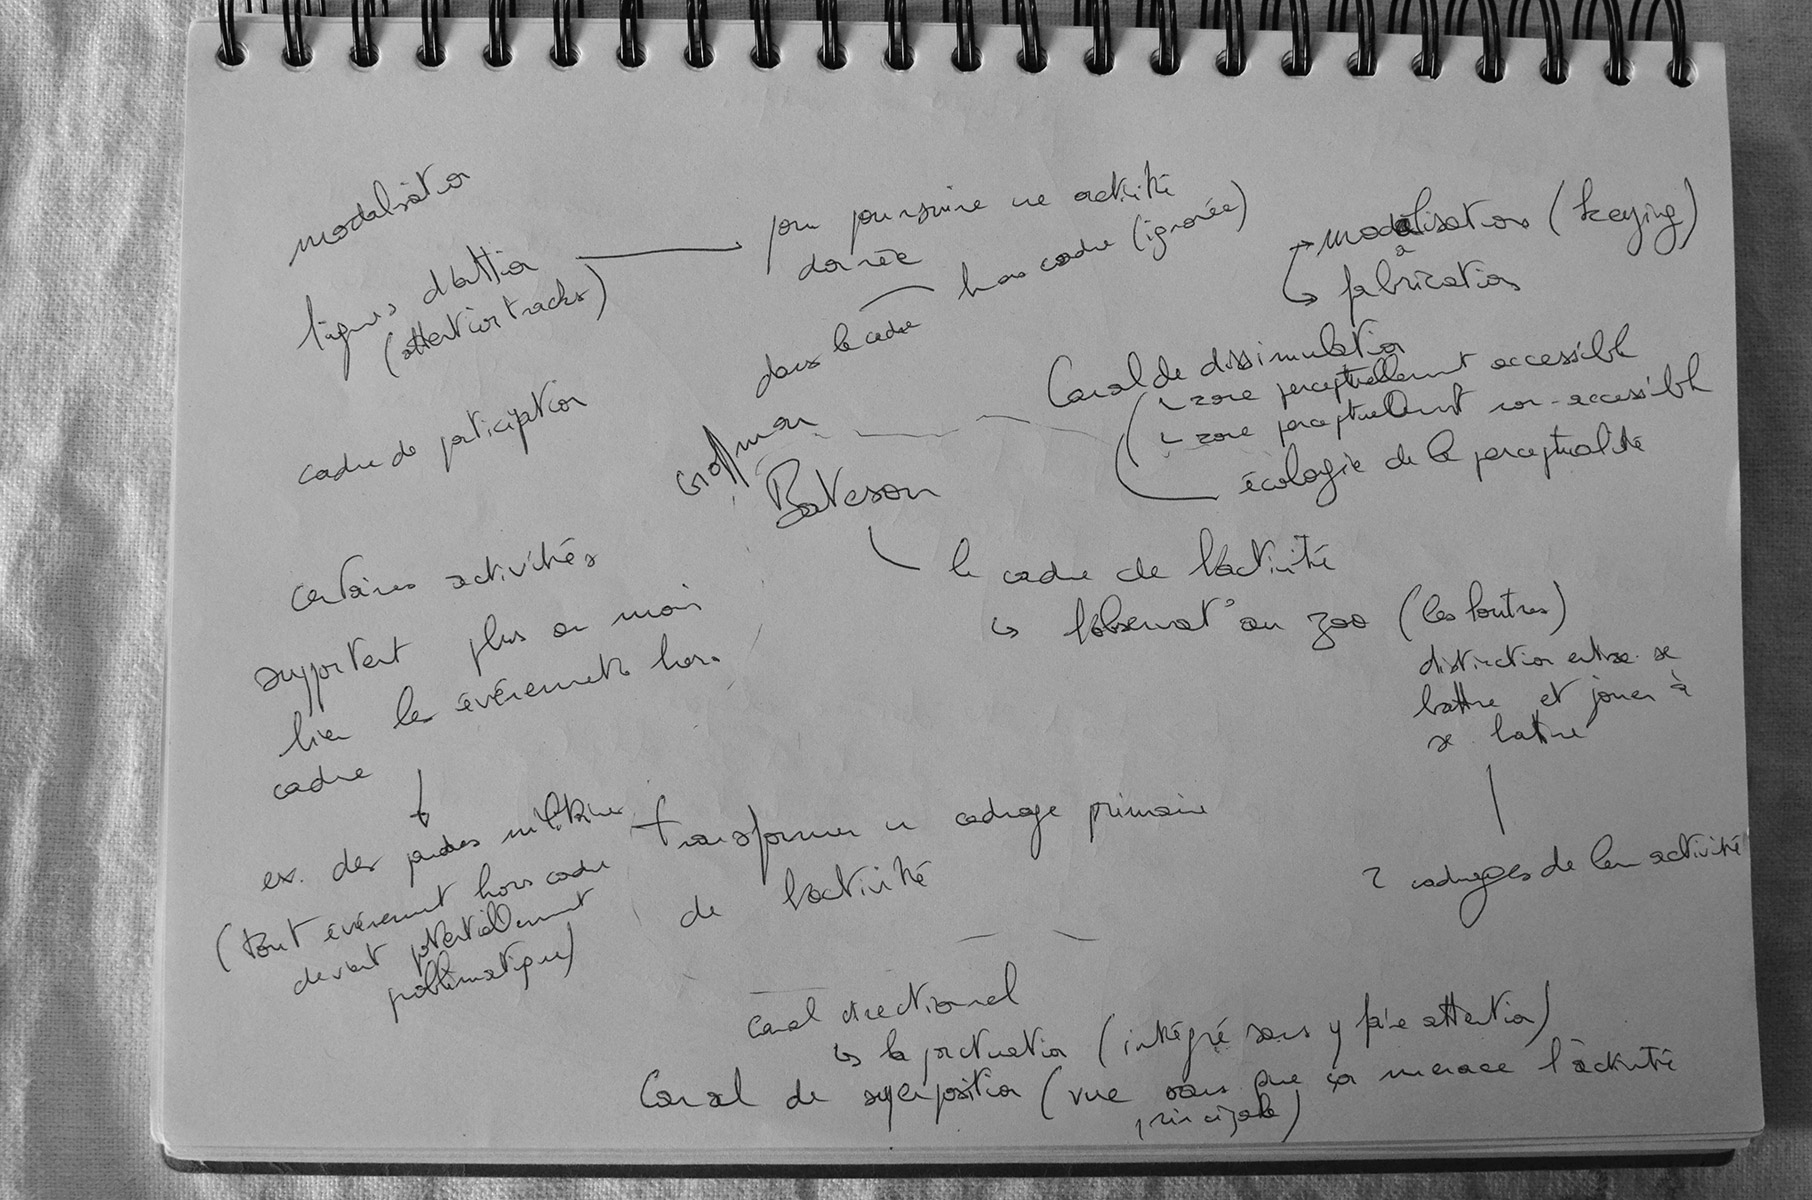 modalisation
lignes d'attion
(attention tracks)
pour poursuivre une activité
donnée
dans le cadre
hors cadre (ignorée)
modalisation (keying)
à
fabrication
cadre de participation
Goffman
Bateson
Canal de dissimulation
zone perceptuellement accessible
zone perceptuellement non-accessible
écologie de la perceptualité
le cadre de l'activité
l'observat° au zoo (les loutres)
distinction entre se
battre et jouer à
se battre
2 cadrages de leur activité
certaines activités
supportent plus ou moins
bien les événements hors
cadre
ex. des gardes militaires
(tout événement hors cadre
devient potentiellement
problématique)
transformer un cadrage primaire
de l'activité
canal directionnel
la ponctuation (intégré sans y faire attention)
Canal de superposition (vue sans que ça menace l'activité
principale)